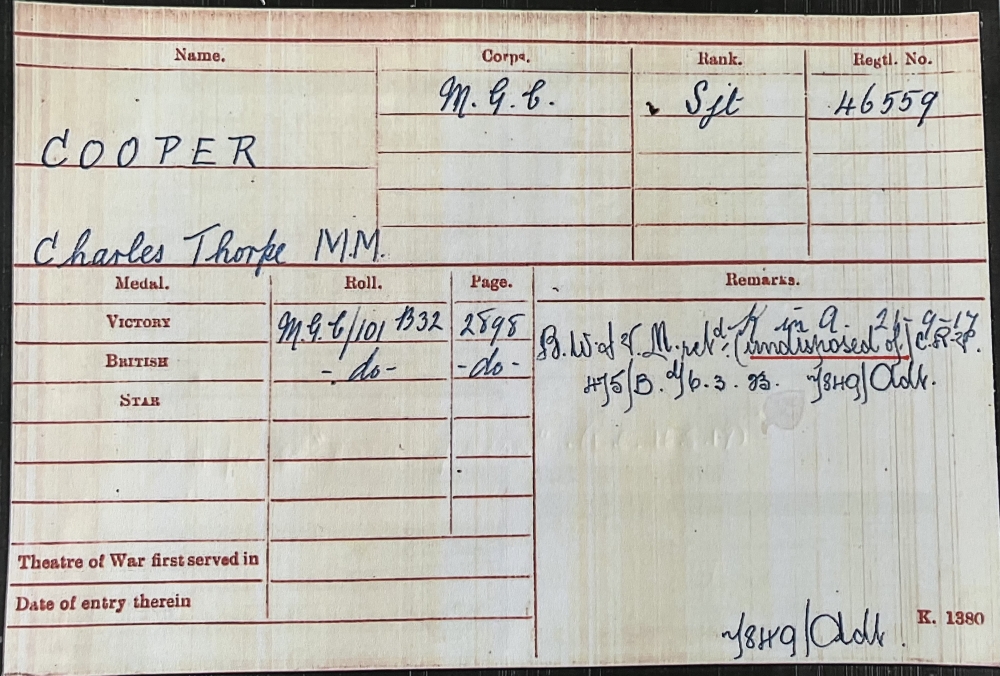 Name. Corps. Rank. Regtl. No.
M.G.C. Sjt 46559
COOPER
Charles Thorpe M.M.
Medal. Roll. Page. Remarks.
VICTORY M.G.C/101 B32 2898 K in A. 21-9-17
BRITISH -do- -do- B.W. & V.M. retd. (undisposed of)
STAR 475/B. d/6.3.23. 7/849/Adt.
Theatre of War first served in
Date of entry therein
7/849/Adt. K. 1380